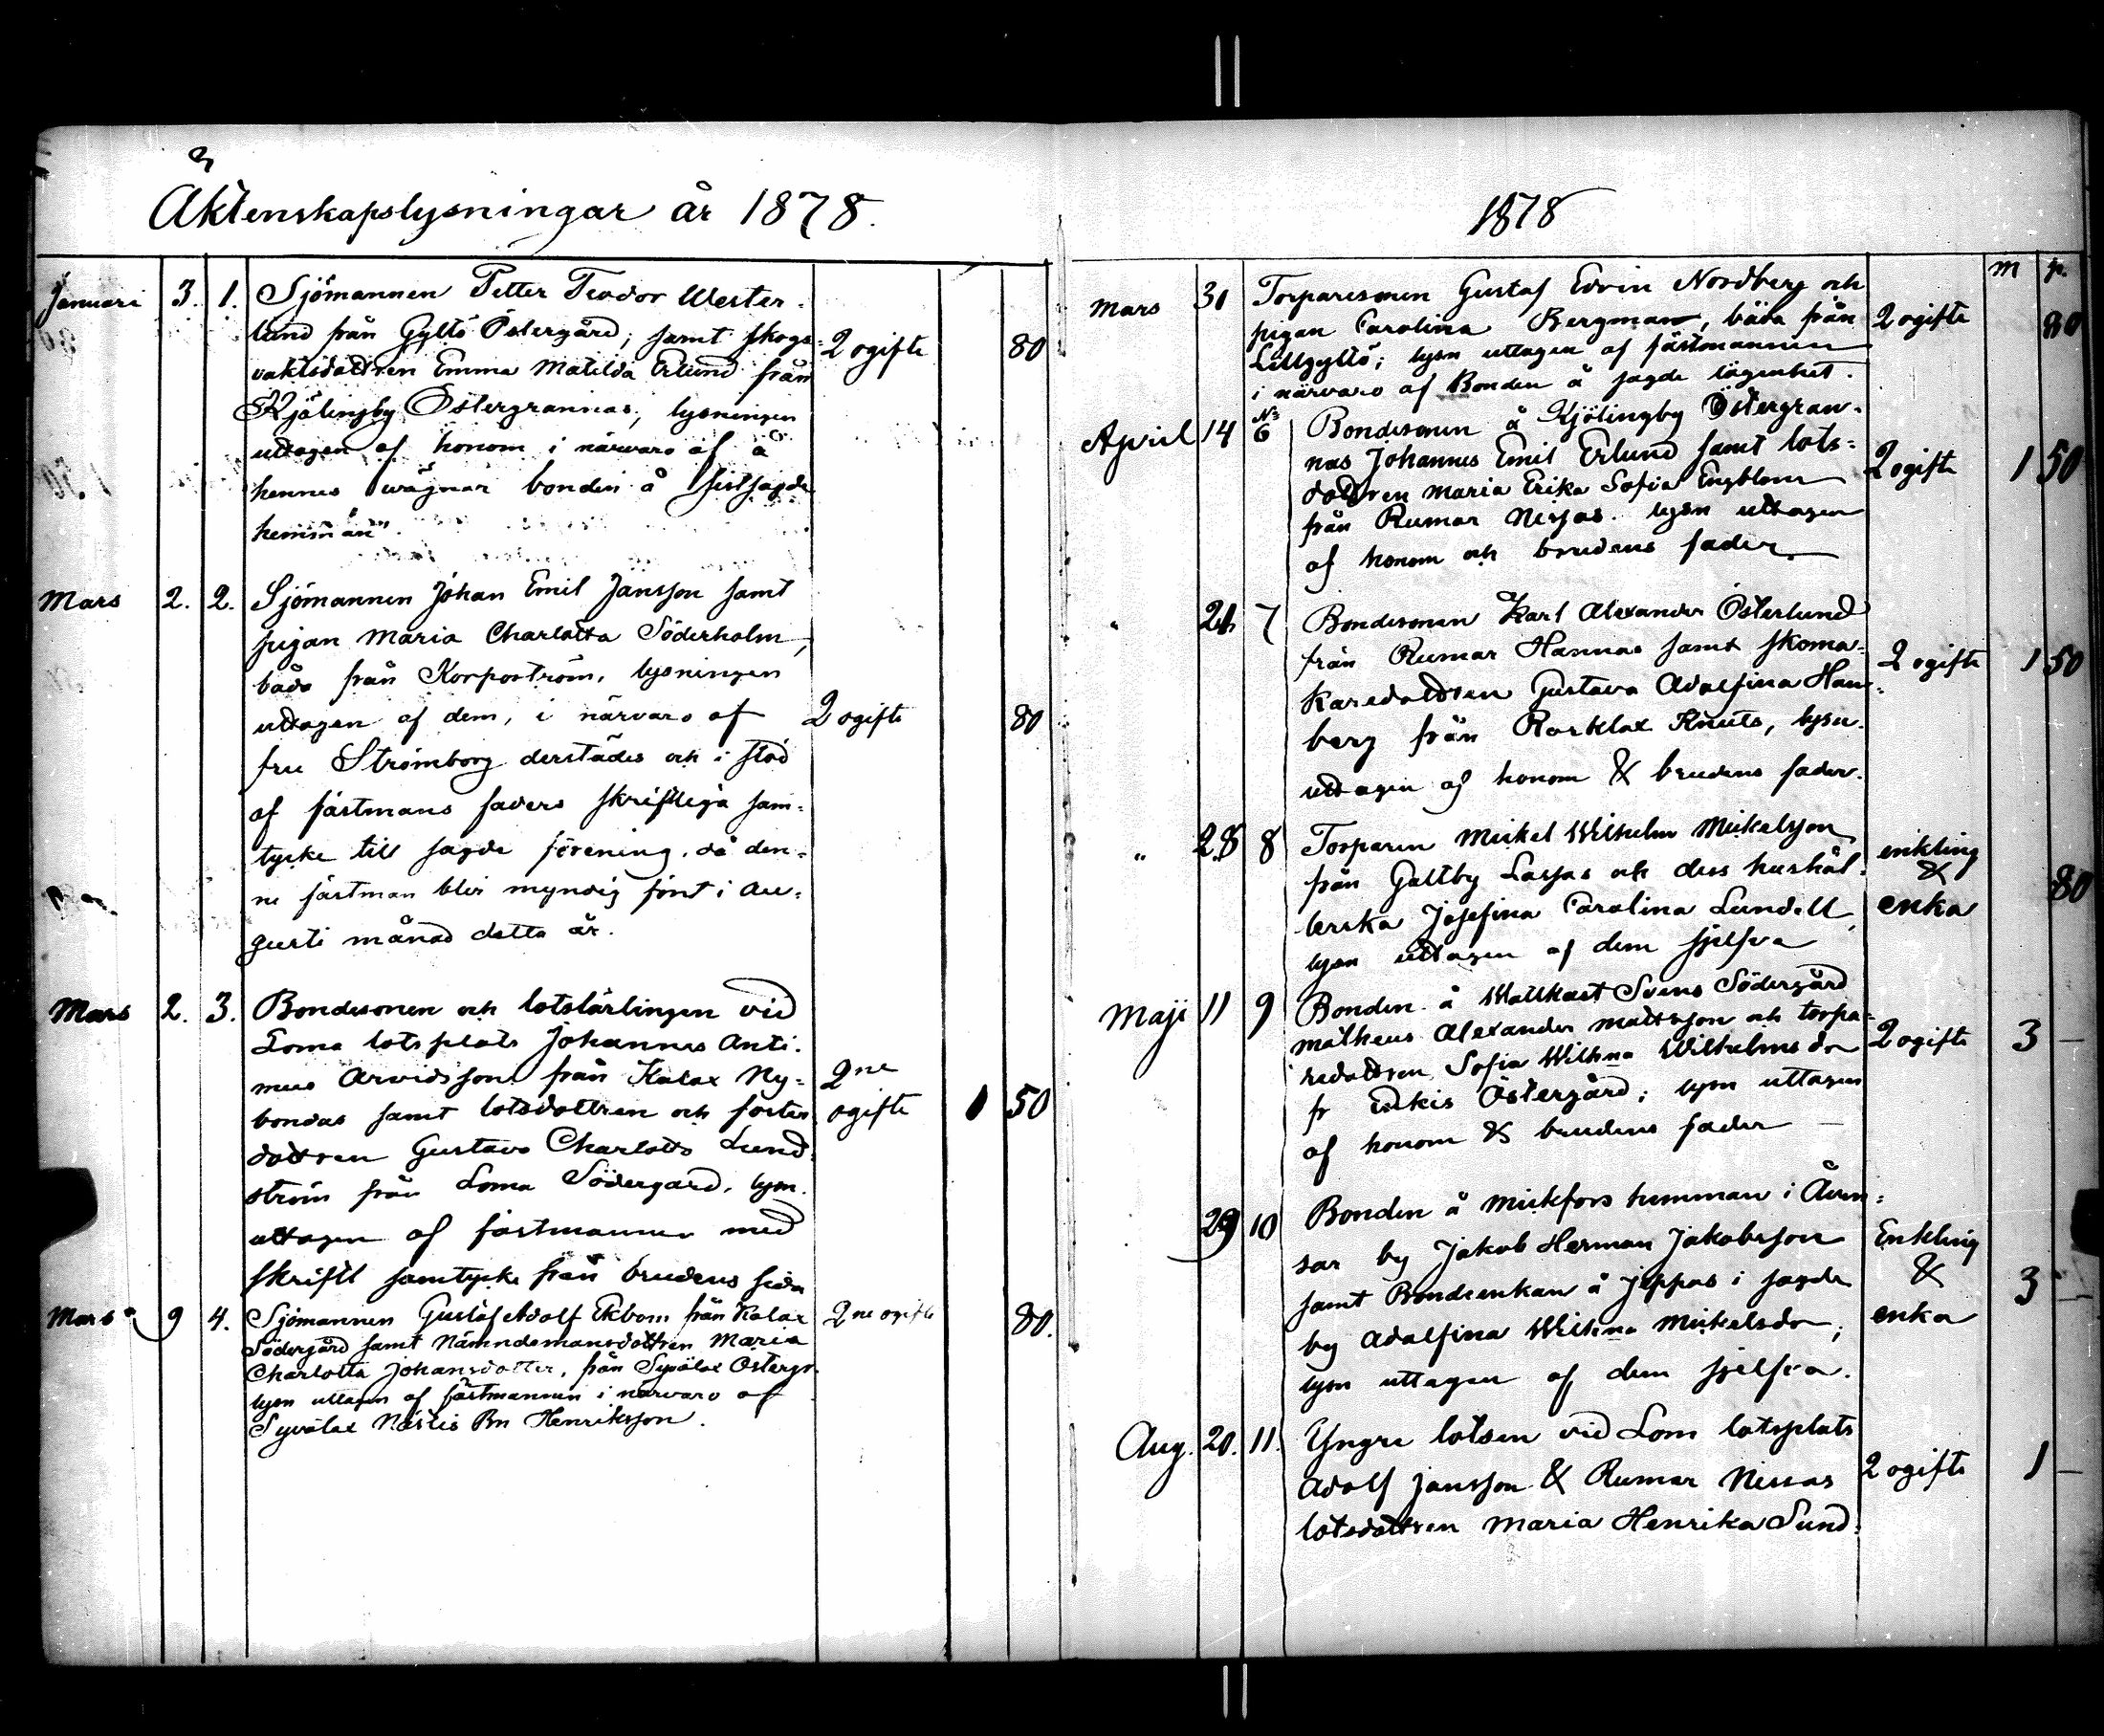 Äktenskapslysningar år 1878.
Januari 3. 1. Sjömannen Petter Teodor Wester-
lund från Gyltö Östergård; samt skogs- 2 ogifte 80
vaktsdottren Emma Matilda Erlund från
Kjälingby Östergrannas; lysningen
uttagen af honom i närvaro af å
hennes vägnar bonden å sistsagde
hemman".
Mars 2. 2. Sjömannen Johan Emil Jansson samt
pigan Maria Charlotta Söderholm,
båda från Korpoström, lysningen
uttagen af dem, i närvaro af 2 ogifte 80
fru Strömborg derstädes och i stöd
af fästmans faders skriftliga sam-
tycke till sagde förening, då den-
ne fästman blir myndig först i Au-
gusti månad detta år.
Mars 2. 3. Bondesonen och lotslärlingen vid
Loma lotsplats Johannes Anti-
mus Arvidsson från Kalax Ny- 2ne
bondas samt lotsdottren och foster ogifte 1 50
dottren Gustava Charlotta Lund-
ström från Loma Södergård, lysn.
uttagen af fästmannen med
skriftl samtycke från brudens sida
Mars 9 4. Sjömannen Gustaf Adolf Ekbom från Kalax 2ne ogifte 80.
Södergård samt Nämndemansdottren Maria
Charlotta Johansdotter, från Syvälax Östergr.
lysn uttagen af fästmannen i närvaro af
Syvälax Bn Henriksson.
1878
m p.
Mars 31 Torparesonen Gustaf Edvin Nordberg och
pigan Carolina Bergman, båda från 2 ogifte 80
Lillgyltö; lysn uttagen af fästmannen
i närvaro af Bonden å sagde lägenhet.
April 14 No 6 Bondesonen å Kjölingby Östergran-
nas Johannes Emil Erlund samt lots-
dottren Maria Erika Sofia Engblom 2 ogifte 1 50
från Rumar Nissas. lysn uttagen
af honom och brudens fader.
" 21 7 Bondesonen Karl Alexander Österlund
från Rumar Hannas samt skoma- 2 ogifte 1 50
karedottren Gustava Adolfina Han-
berg från Rorklax Knuts, lysn.
uttagen af honom & brudens fader.
" 28 8 Torparen Mickel Wilhelm Mickelsson enkling
från Galtby Lassas och dess hushål- & 80
lerska Josefina Carolina Lundell, enka
lysn uttagen af dem sjelfva
Maji 11 9 Bonden å Wattkast Svens Södergård
Matheus Alexander Mattsson och torpa- 2 ogifte 3 —
redottren Sofia Wilhna Wilhelmsdr
fr Enkis Östergård; lysn uttagen
af honom & brudens fader —
29 10 Bonden å Mickfors hemman i Åven-
sar by Jakob Herman Jakobsson Enkling
samt Bondeenkan å Jeppas i sagde & 3 —
by Adolfina Wilhna Mickelsdr; enka
lysn uttagen af dem sjelfva.
Aug. 20. 11. Yngre lotsen vid Lom lotsplats
Adolf Jansson & Rumar Nissas 2 ogifte 1 —
lotsdottren Maria Henrika Sund-